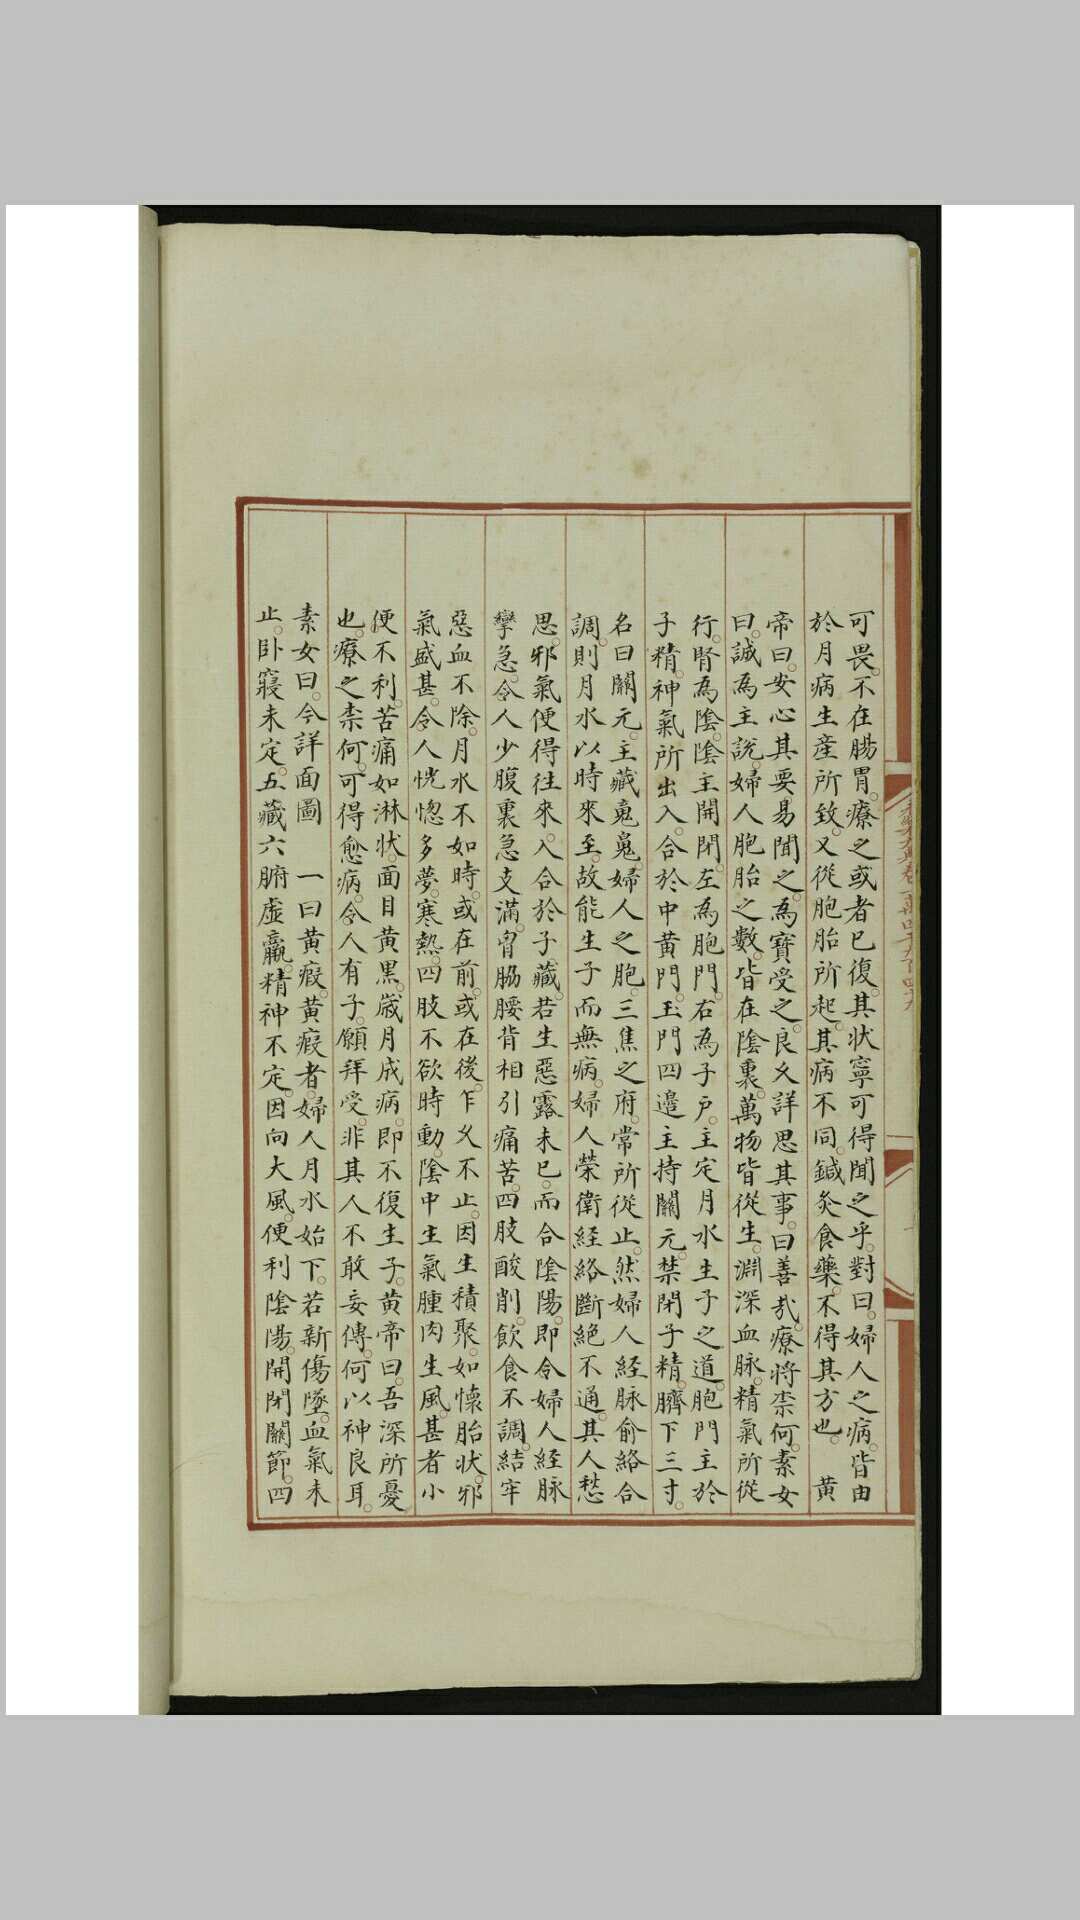 可畏不在腸胃療之或者已復其状寧可得聞之乎對曰婦人之病皆由
於月病生產所致又從胞胎所起其病不同鍼灸食藥不得其方也　黄
帝曰安心其要易聞之為寳受之良久詳思其事曰善哉療将柰何素女
曰誠為主說婦人胞胎之數皆在陰裏萬物皆從生淵深血脉精氣所從
行腎為陰陰主開閉左為胞門右為子户主定月水生子之道胞門主於
子精神氣所出入合於中黄門玉門四邉主持關元禁閉子精臍下三寸
名曰關元主藏䰟䰟婦人之胞三焦之府常所從止然婦人經脉俞絡合
調則月水以時來至故能生子而無病婦人榮衛經絡斷絶不通其人愁
思邪氣便得往來入合於子藏若生惡露未已而合陰陽即令婦人經脉
攣急令人少腹裏急支滿胷脇腰背相引痛苦四肢酸削飲食不調結牢
惡血不除月水不如時或在前或在後乍久不止因生積聚如懷胎状邪
氣盛甚令人恍惚多夢寒熱四肢不欲時動陰中生氣腫肉生風甚者小
便不利苦痛如淋状面目黄黑歲月成病即不復生子黄帝曰吾深所憂
也療之柰何可得愈病令人有子願拜受非其人不敢妄傳何以神良耳
素女曰今詳面圖　一曰黄瘕黄瘕者婦人月水始下若新傷墜血氣未
止卧寢未定五藏六腑虚羸精神不定因向大風便利陰陽開閉關節四